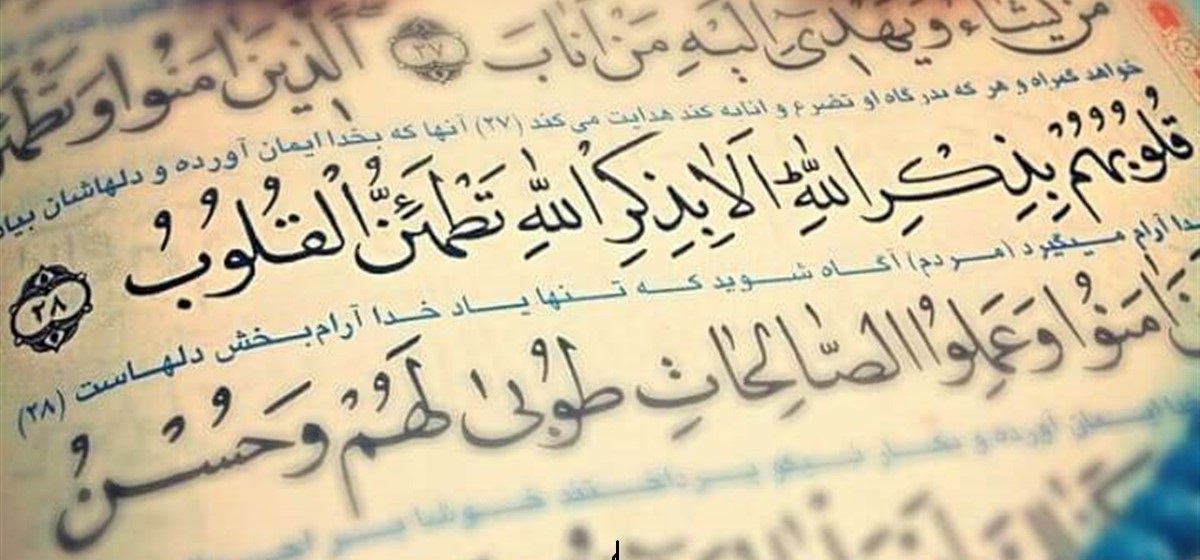 مَنْ يَشَاءُ وَيَهْدِي إِلَيْهِ مَنْ أَنَابَ ﴿٢٧﴾ الَّذِينَ آمَنُوا وَتَطْمَئِنُّ
خواهد گمراه و هر که بدرگاه او تضرع و انابه کند هدایت می کند (۲۷) آنها که بخدا ایمان آورده و دلهاشان بیاد
قُلُوبُهُمْ بِذِكْرِ اللَّهِ أَلَا بِذِكْرِ اللَّهِ تَطْمَئِنُّ الْقُلُوبُ ﴿٢٨﴾
خدا آرام میگیرد (مردم) آگاه شوید که تنها یاد خدا آرام‌بخش دلهاست (۲۸)
آمَنُوا وَعَمِلُوا الصَّالِحَاتِ طُوبَىٰ لَهُمْ وَحُسْنُ
ایمان آورده و بکار نیکو پرداختند خوشا بر